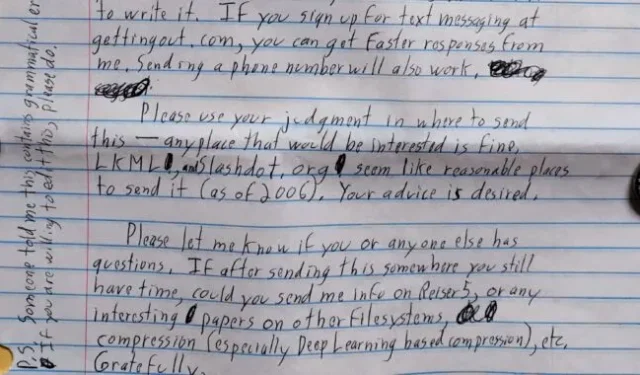 to write it. If you sign up for text messaging at
gettingout.com, you can get faster responses from
me. Sending a phone number will also work.
Please use your judgment in where to send
this — any place that would be interested is fine.
LKML, and Slashdot.org seem like reasonable places
to send it (as of 2006). Your advice is desired.
Please let me know if you or anyone else has
questions. If after sending this somewhere you still
have time, could you send me info on Reiser5, or any
interesting papers on other filesystems,
compression (especially Deep Learning based compression), etc.
Gratefully,
P.S. Someone told me this contains grammatical er
If you are willing to edit this, please do.